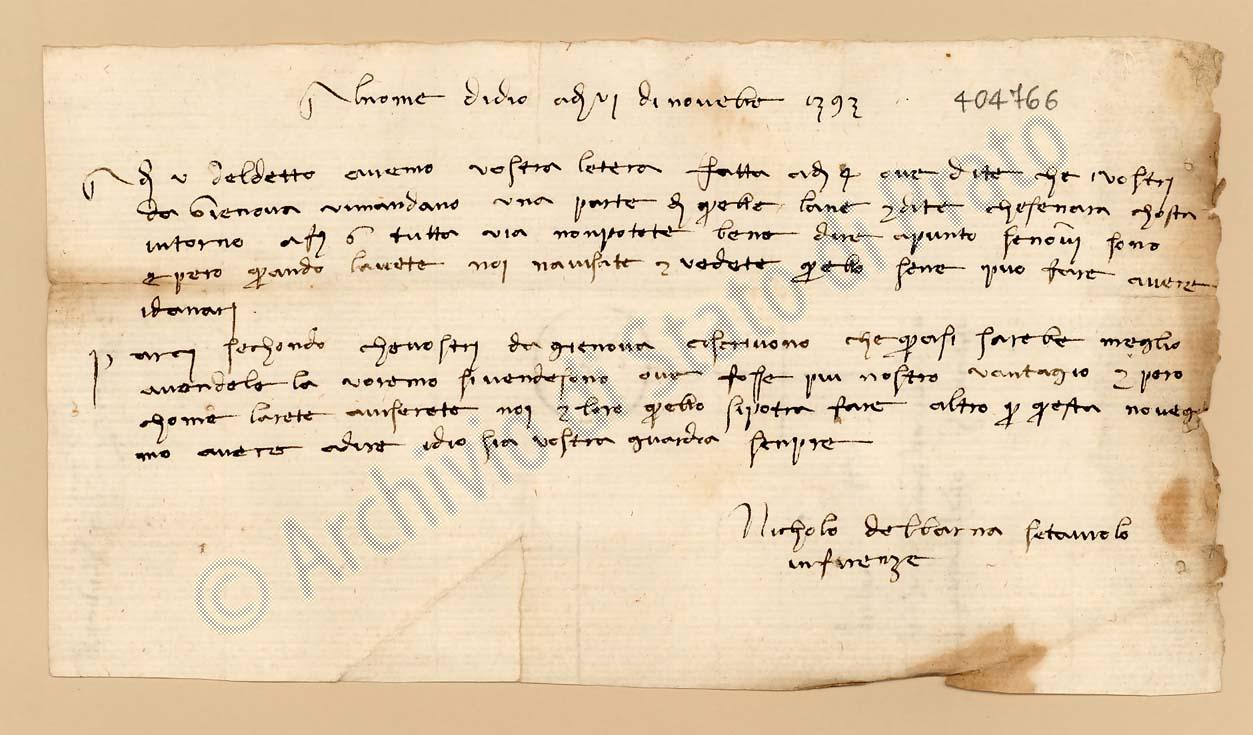 Al nome di dio adì vi di novebre 1393
404766
Adì v deldetto avemo vostra letera fatta adì 4 ove dite che vostri
da Gienova vi mandano una parte di quelle lane e dite che sena ra chosta
intorno a 6 tutta via non potete bene dire apunto se non vi sono
e pero quando lavete noi navisate e vedete quello sene può fare avere
idanari
Parci sechondo che vostri da gienova ci scrivono che quasi sarebe meglio
avendole la voremo si vendesono ove fosse più nostro vantagio e pero
chome larete aviserete noi e loro quello si potra fare altro per questa nove
mo avere a dire idio sia vostra guardia senpre
Nicholo delbarna setaiuolo
in firenze
© Archivio di Stato di Prato